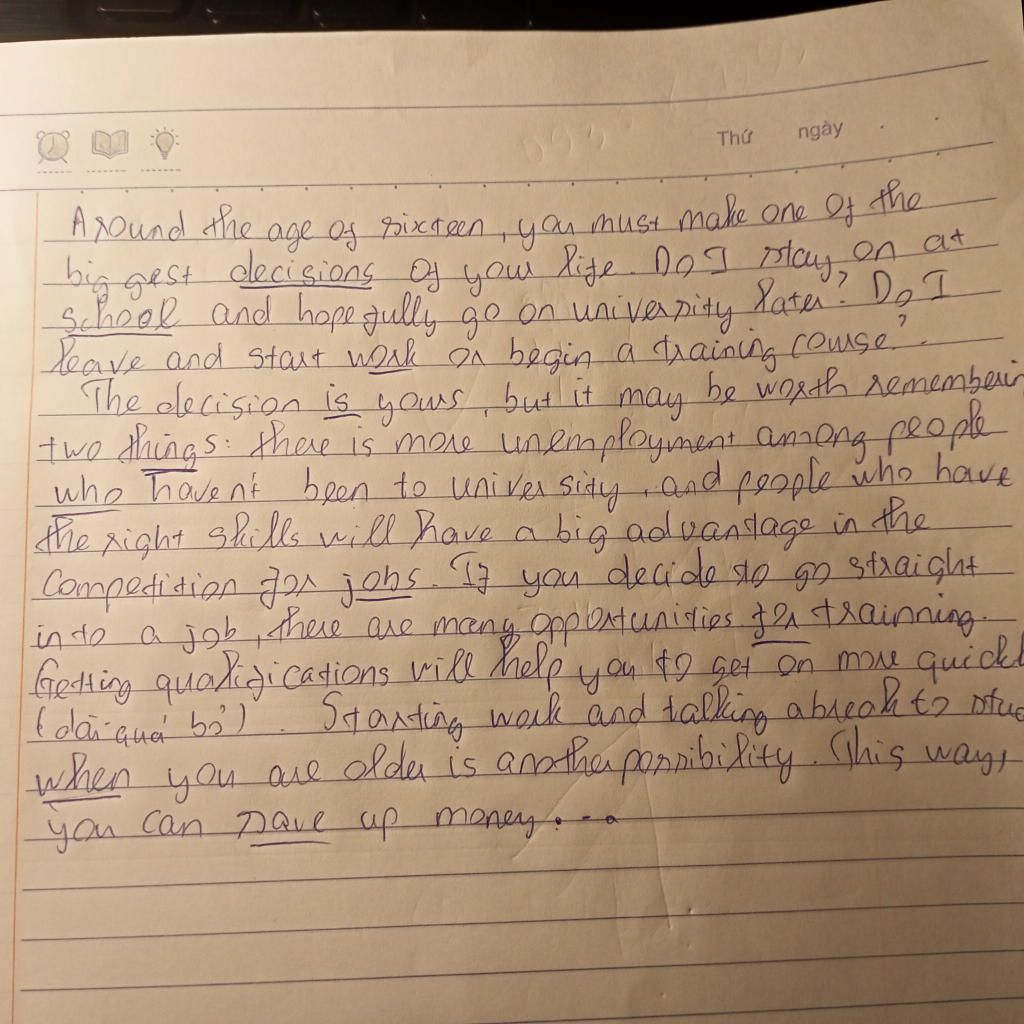 Thứ ngày
Around the age of sixteen, you must make one of the
biggest decisions of your life. Do I stay on at
school and hopefully go on university later? Do I
leave and start work or begin a training course?
The decision is yours, but it may be worth rememberin
two things: there is more unemployment among people
who haven't been to university, and people who have
the right skills will have a big advantage in the
competition for jobs. If you decide to go straight
into a job, there are many opportunities for trainning.
Getting qualifications will help you to get on more quickl
(dài quá bỏ). Starting work and talking a break to stud
when you are older is another possibility. This way,
you can save up money...